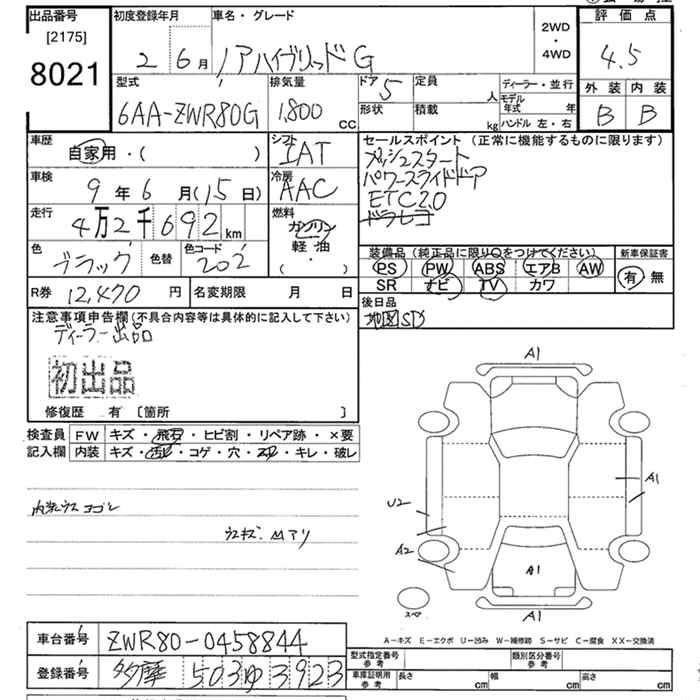 出品番号
[2175]
8021
初度登録年月
2 6月
車名・グレード
ノアハイブリッドG
2WD
・
4WD
評価点
4.5
外装 内装
B B
型式
6AA-ZWR80G
排気量
1,800 CC
ドア 5
形状
定員 人
積載 kg
ディーラー・並行
モデル年式 年
ハンドル 左・右
車歴
自家用・( )
シフト
IAT
車検
9年6月(15日)
冷房
AAC
走行
4万2千692km
燃料
ガソリン
軽・油
( ・ )
色
ブラック
色替
色コード
202
R券 12,470 円
名変期限 月 日
セールスポイント (正常に機能するものに限ります)
プッシュスタート
パワースライドドア
ETC2.0
ドラレコ
装備品(純正品に限り○をつけてください)
PS PW ABS エアB AW
SR ナビ TV カワ
新車保証書
有 無
後日品
地図SD
注意事項申告欄(不具合内容等は具体的に記入して下さい)
ディーラー出品
初出品
修復歴 有 [箇所 ]
検査員
記入欄
FW キズ・飛石・ヒビ割・リペア跡・×要
内装 キズ・汚レ・コゲ・穴・スレ・キレ・破レ
内装ウスヨゴレ
ウスキズ、凹アリ
A1
A1
U2
A2
A1
A1
スペア
A-キズ E-エクボ U-凹み W-補修跡 S-サビ C-腐食 XX-交換済
車台番号 ZWR80-0458844
登録番号 多摩 503 ゆ 3923
型式指定番号
参考
類別区分番号
参考
車庫証明用
参考
長さ cm
幅 cm
高さ cm